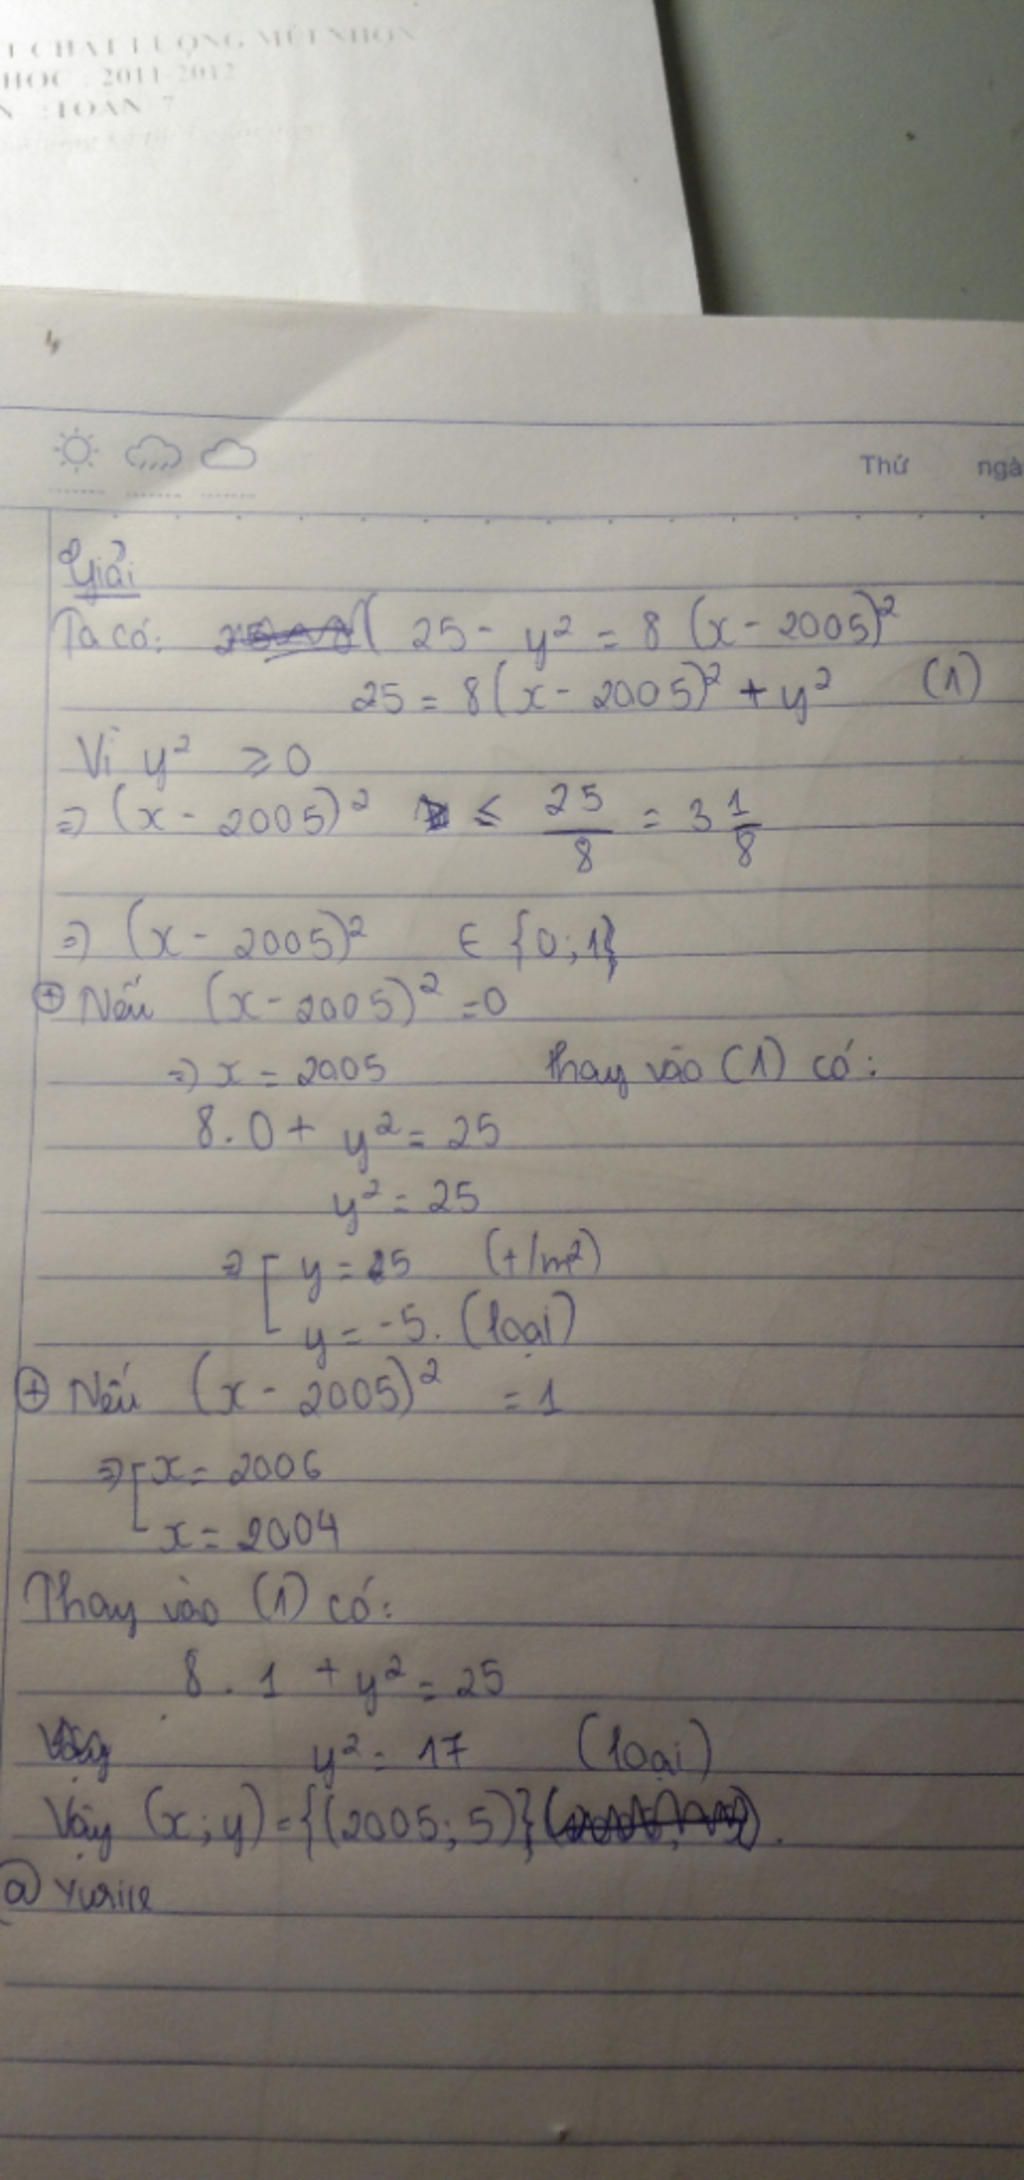 T CHẤT LƯỢNG MŨI NHỌN
HỌC : 2011-2012
N : TOÁN 7
Thứ ngà
Giải
Ta có: ( 25 - y² = 8 (x - 2005)²
25 = 8(x - 2005)² + y² (1)
Vì y² ≥ 0
=> (x - 2005)² ≤ 25/8 = 3 1/8
=> (x - 2005)² ∈ {0; 1}
⊕ Nếu (x - 2005)² = 0
=> x = 2005 Thay vào (1) có:
8 . 0 + y² = 25
y² = 25
=> [ y = 5 (t/m²)
y = -5. (loại)
⊕ Nếu (x - 2005)² = 1
=> [ x = 2006
x = 2004
Thay vào (1) có:
8 . 1 + y² = 25
y² = 17 (loại)
Vậy (x; y) = {(2005; 5)}
@ Yurice